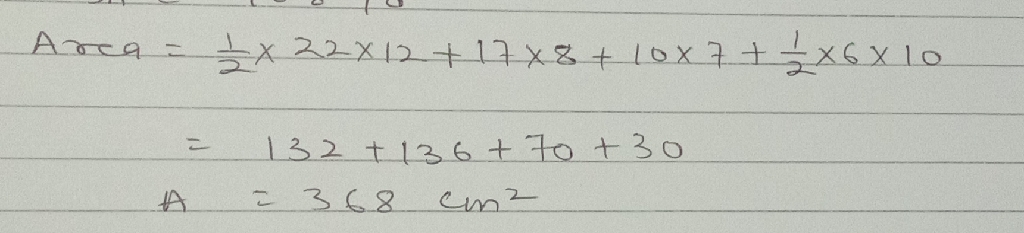 Area = 1/2 × 22 × 12 + 17 × 8 + 10 × 7 + 1/2 × 6 × 10
= 132 + 136 + 70 + 30
A = 368 cm²